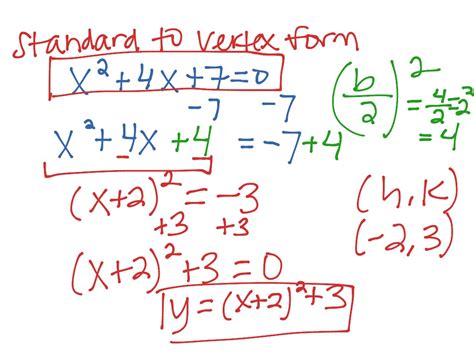 standard to vertex form
x² + 4x + 7 = 0
-7 -7
x² + 4x + 4 = -7 + 4
(b/2)² = 4/2 = 2² = 4
(x+2)² = -3
+3 +3
(h, k)
(-2, 3)
(x+2)² + 3 = 0
y = (x+2)² + 3